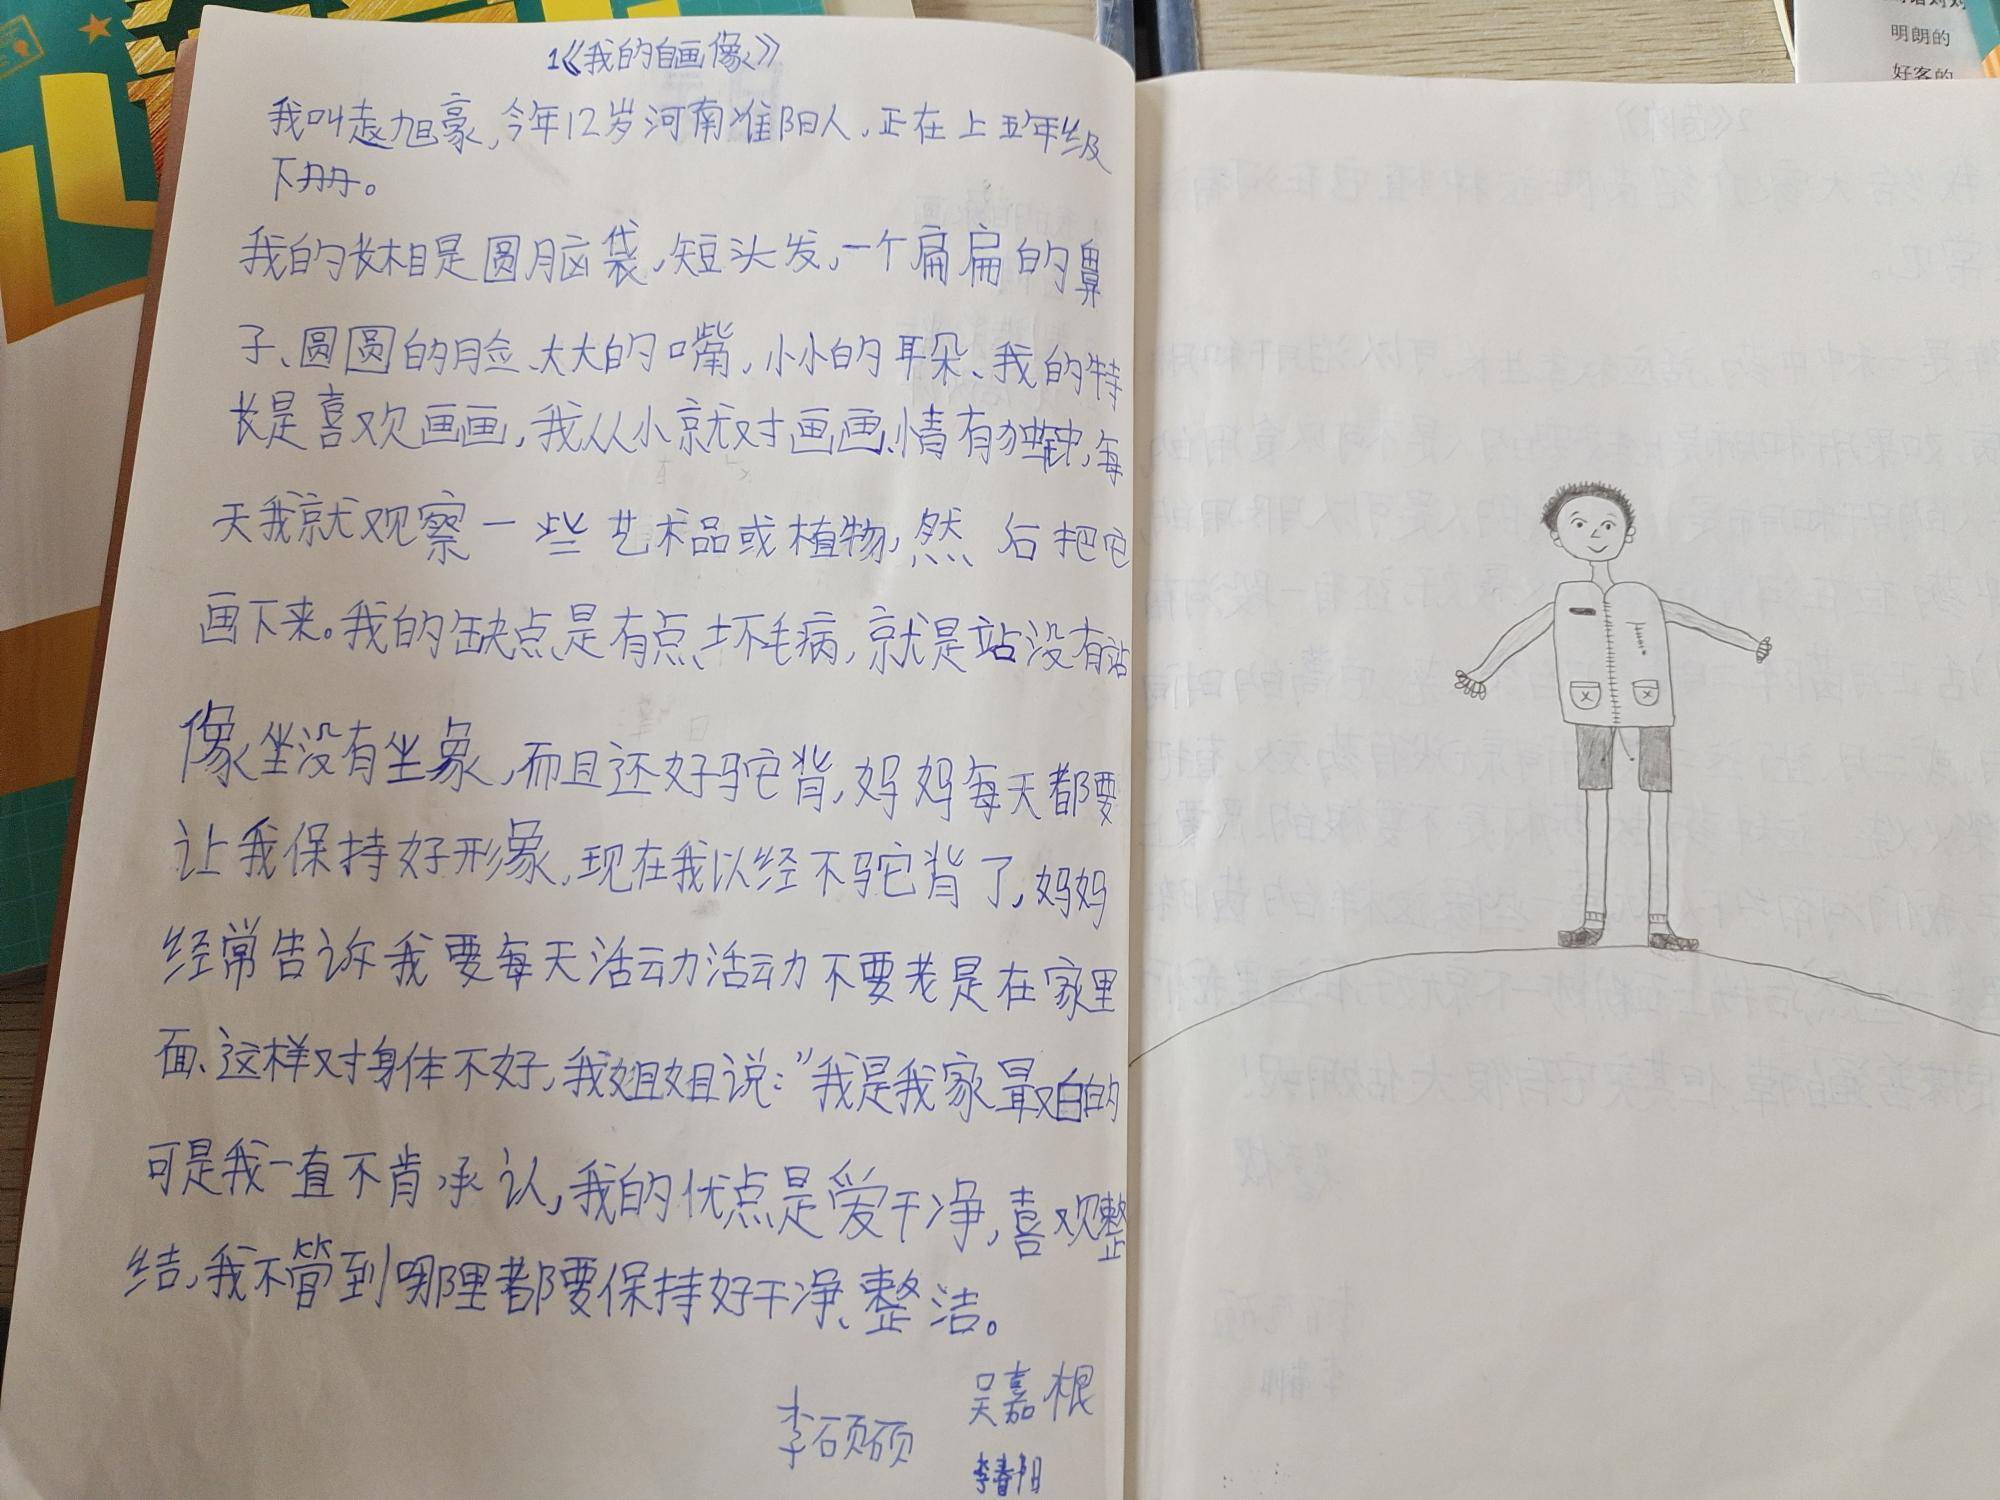 1《我的自画像》
我叫赵旭豪,今年12岁河南淮阳人,正在上五年级
下册。
我的长相是圆脑袋,短头发,一个扁扁的鼻
子、圆圆的脸、大大的嘴,小小的耳朵、我的特
长是喜欢画画,我从小就对画画、情有独钟,每
天我就观察一些艺术品或植物,然后把它
画下来。我的缺点是有点坏毛病,就是站没有站
像坐没有坐象,而且还好驼背,妈妈每天都要
让我保持好形象,现在我以经不驼背了,妈妈
经常告诉我要每天活动活动不要老是在家里
面、这样对身体不好,我姐姐说:"我是我家最白的
可是我一直不肯承认,我的优点是爱干净,喜欢整
结,我不管到哪里都要保持好干净、整洁。
吴嘉根
李硕硕
李春阳
明朗的
好客的